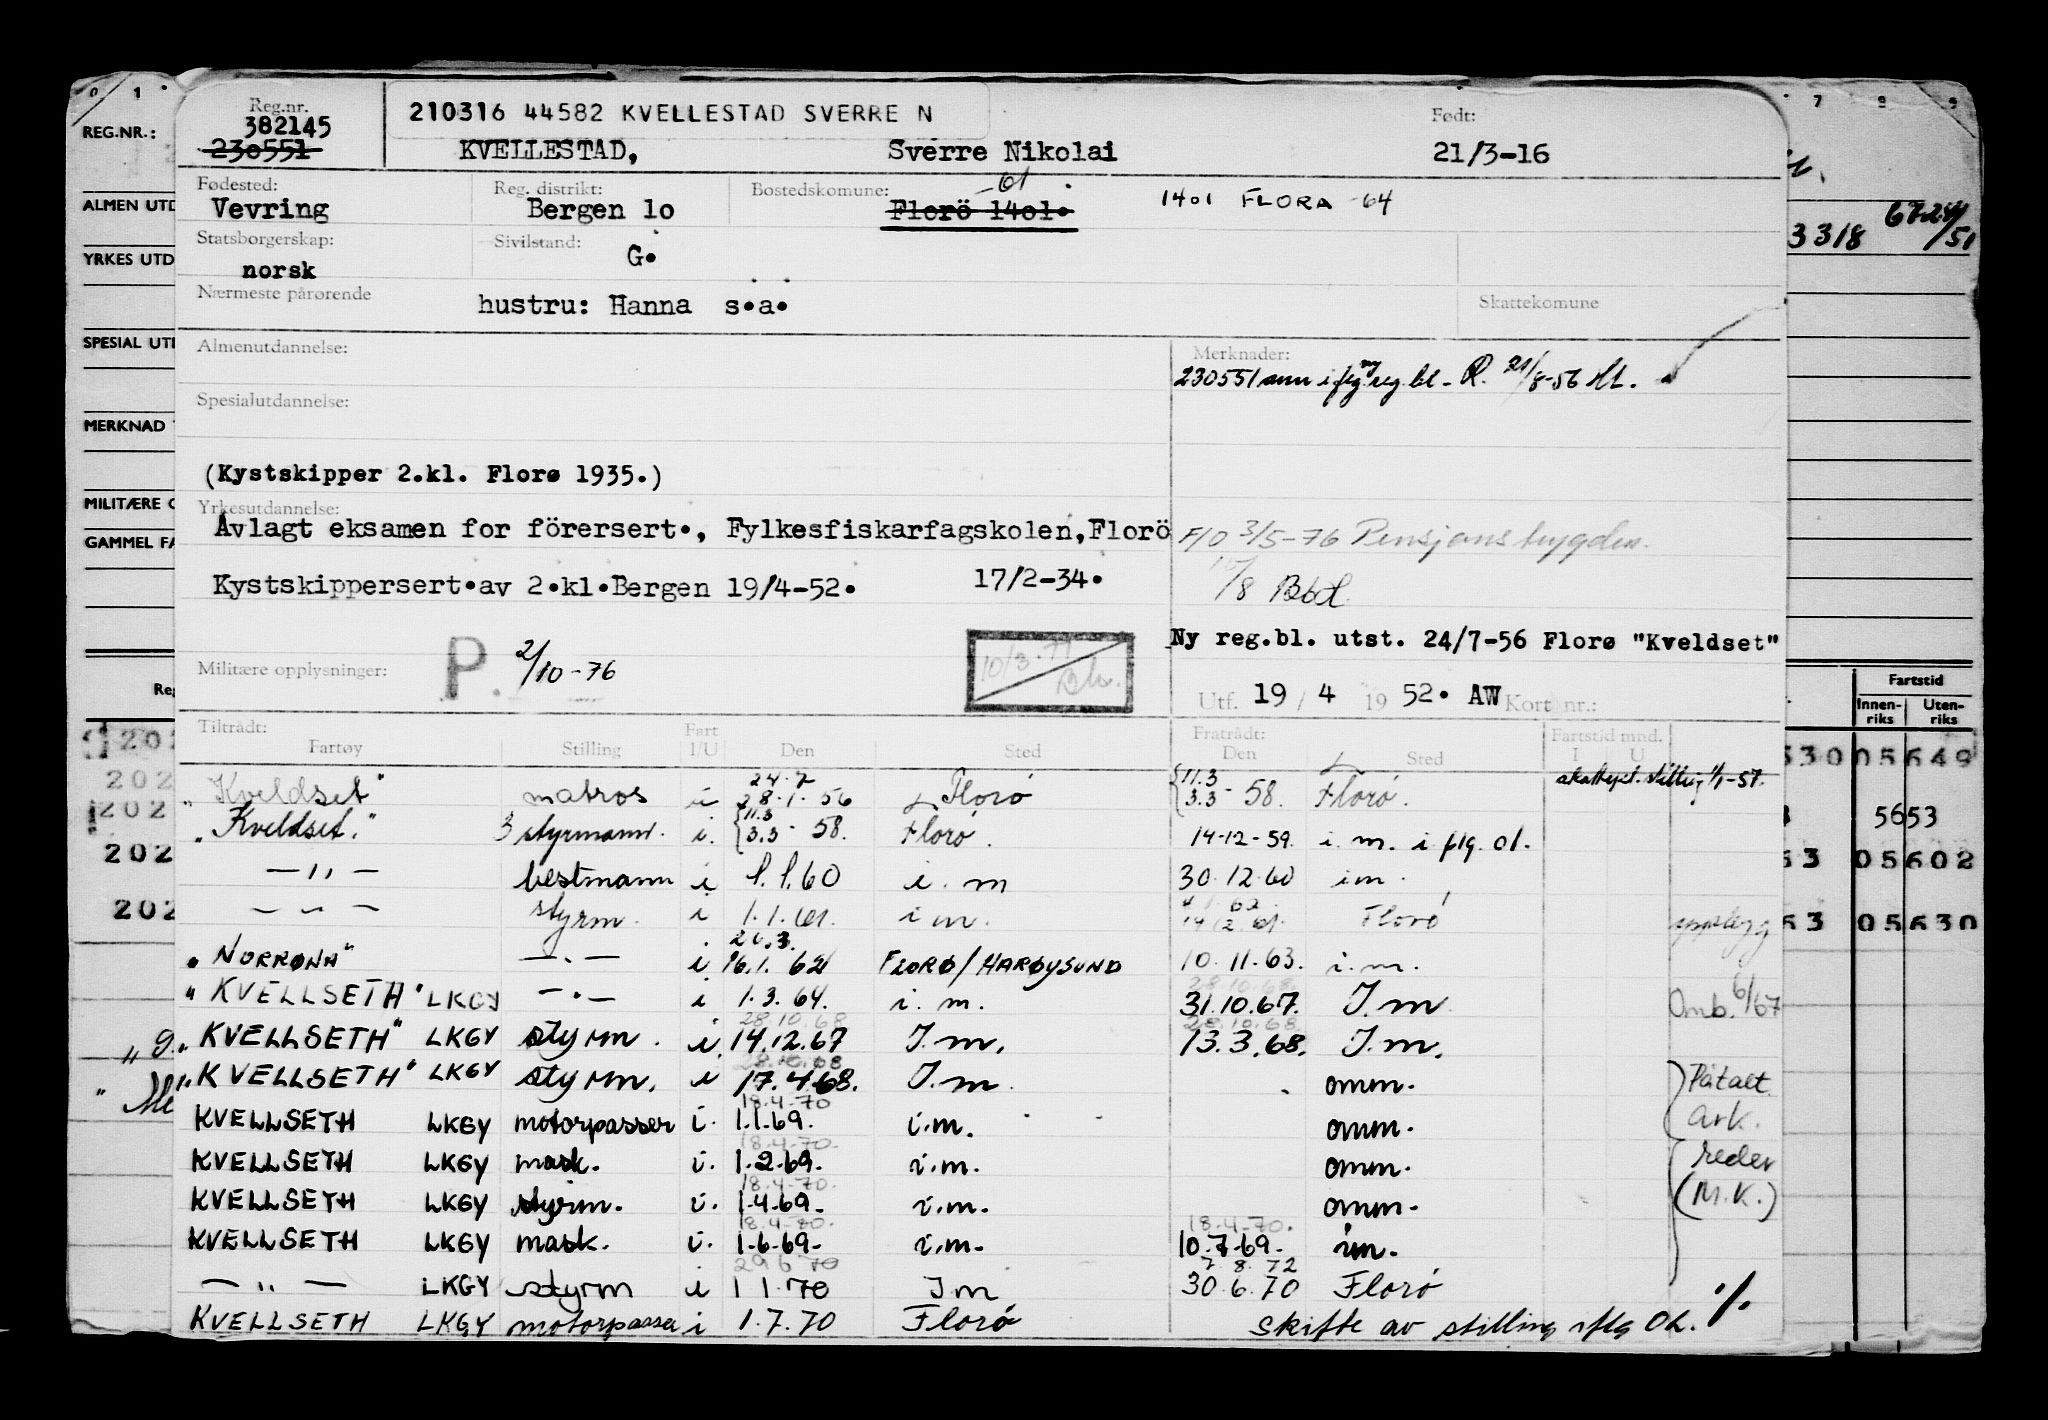 0 1 7 8 9
Reg.nr.
382145
230551
210316 44582 KVELLESTAD SVERRE N
KVELLESTAD, Sverre Nikolai
Født:
21/3-16
REG.NR.:
Fødested:
Vevring
Reg. distrikt:
Bergen 1o
Bostedskomune: -61
Florö 14o1.
1401 FLORA -64
ALMEN UTD
3318 /51
Statsborgerskap:
norsk
Sivilstand:
G.
YRKES UTD
Nærmeste pårørende
hustru: Hanna s.a.
Skattekomune
SPESIAL UTD
Almenutdannelse:
Merknader:
230551 ann i flg ny reg.bl. R. 21/8-56
Spesialutdannelse:
MERKNAD
(Kystskipper 2.kl. Florø 1935.)
MILITÆRE
Yrkesutdannelse:
Avlagt eksamen for förersert., Fylkesfiskarfagskolen, Florö
17/2-34.
F/O 3/5-76 Pensjonstrygden.
GAMMEL FA
Kystskippersert.av 2.kl.Bergen 19/4-52.
Ny reg.bl. utst. 24/7-56 Florø "Kveldset"
Militære opplysninger: P. 2/10-76
10/3.77
Utf. 19 / 4 1952. AW Kort nr.:
Fartstid
Innen-riks Uten-riks
Tiltrådt:
Fartøy Stilling Fart I/U Den Sted
Fratrådt:
Den Sted Fartstid mnd. I U
24.7
"Kveldset" matros i 28.1.56 Florø {11.3 3.3-58. Florø. skattepl. 1/1-57.
"Kveldset." 3 styrmann. i. {11.3 3.3-58. Florø. 14-12-59. i.m. i flg. ol.
— " — bestmann i 1.1.60 i.m 30.12.60 im.
— " — styrm. i 1.1.61. i m. 4.1.62 14.12.61. Florø
20.3.
"NORRØNA" — " — i 16.1.62 FLORØ/HARØYSUND 10.11.63. i.m.
"KVELLSETH" LKGY — " — i 1.3.64. i.m. 28.10.68. 31.10.67. I.m Omb. 6/67
"KVELLSETH" LKGY styrm. i. 28.10.68 14.12.67 I.m. 28.10.68. 13.3.68. I.m.
"KVELLSETH" LKGY styrm. i 28.10.68 17.4.68. I.m. omm.
KVELLSETH LKGY motorpasser i. 18.4-70 1.1.69. i.m. omm.
KVELLSETH LKGY mask. i. 18.4-70. 1.2.69. i.m. omm.
KVELLSETH LKGY styrm. i. 18.4-70. 1.4.69. i.m. omm.
KVELLSETH LKGY mask. i. 18.4-70. 1.6.69. i.m. 18.4-70. 10.7.69. im.
Påtalt
ark.
reder
(M.K.)
— " — LKGY styrm i 29.6.70 1 1.70 I.m 7.8.72 30.6.70 Florø
KVELLSETH LKGY motorpasser i 1.7.70 Florø skifte av stilling iflg OL. ./.
202
202
202
202
202
33005649
5653
5305602
5305630